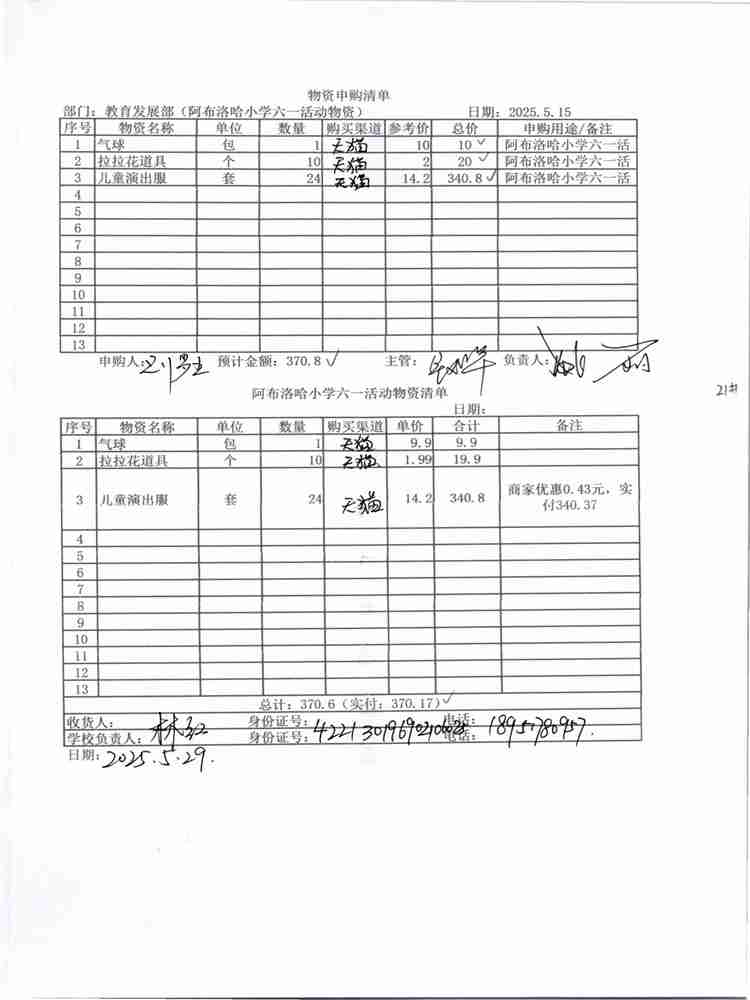 物资申购清单
部门：教育发展部（阿布洛哈小学六一活动物资） 日期：2025.5.15
序号 物资名称 单位 数量 购买渠道 参考价 总价 申购用途/备注
1 气球 包 1 天猫 10 10 ✓ 阿布洛哈小学六一活
2 拉拉花道具 个 10 天猫 2 20 ✓ 阿布洛哈小学六一活
3 儿童演出服 套 24 天猫 14.2 340.8 ✓ 阿布洛哈小学六一活
4
5
6
7
8
9
10
11
12
13
申购人： 预计金额：370.8 ✓ 主管： 负责人：
21#
阿布洛哈小学六一活动物资清单
日期：
序号 物资名称 单位 数量 购买渠道 单价 合计 备注
1 气球 包 1 天猫 9.9 9.9
2 拉拉花道具 个 10 天猫 1.99 19.9
3 儿童演出服 套 24 天猫 14.2 340.8 商家优惠0.43元，实
付340.37
4
5
6
7
8
9
10
11
12
13
总计：370.6（实付：370.17） ✓
收货人： 身份证号： 电话：
学校负责人：林红 身份证号： 电话：
日期：2025.5.29.